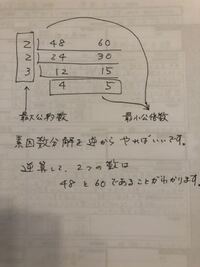 2 48 60
2 24 30
3 12 15
4 5
最大公約数 最小公倍数
素因数分解を逆からやればいいです。
逆算して、2つの数は
48と60であることがわかります。